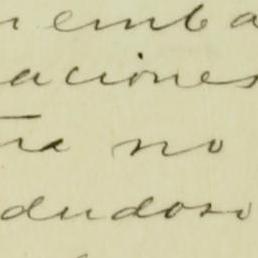 emba
aciones
tra no
dudoso